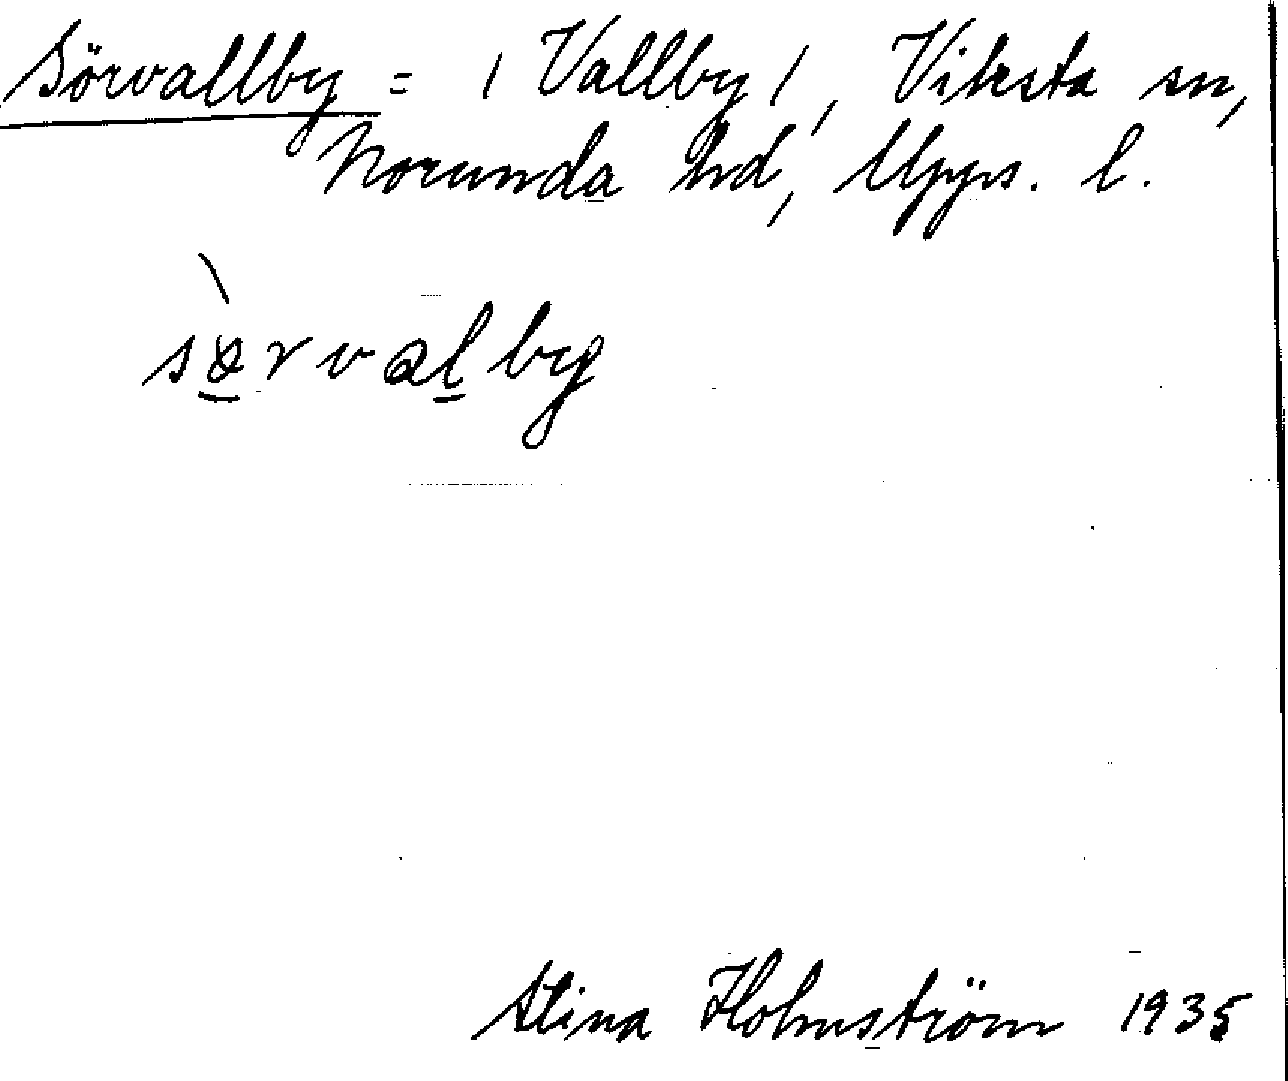 Sörvallby = / Vallby /, Viksta sn,
Norunda hd, Upps. l.
sɵ̀rvalby
Stina Holmström 1935